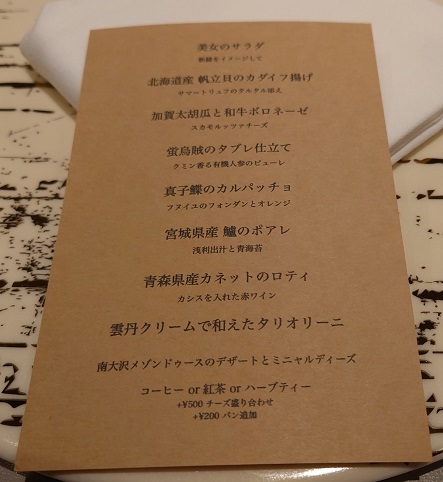 美女のサラダ
新緑をイメージして
北海道産 帆立貝のカダイフ揚げ
サマートリュフのタルタル添え
加賀太胡瓜と和牛ボロネーゼ
スカモルッツァチーズ
蛍烏賊のタブレ仕立て
クミン香る有機人参のピューレ
真子鰈のカルパッチョ
フヌイユのフォンダンとオレンジ
宮城県産 鱸のポアレ
浅利出汁と青海苔
青森県産カネットのロティ
カシスを入れた赤ワイン
雲丹クリームで和えたタリオリーニ
南大沢メゾンドゥースのデザートとミニャルディーズ
コーヒー or 紅茶 or ハーブティー
+¥500 チーズ盛り合わせ
+¥200 パン追加